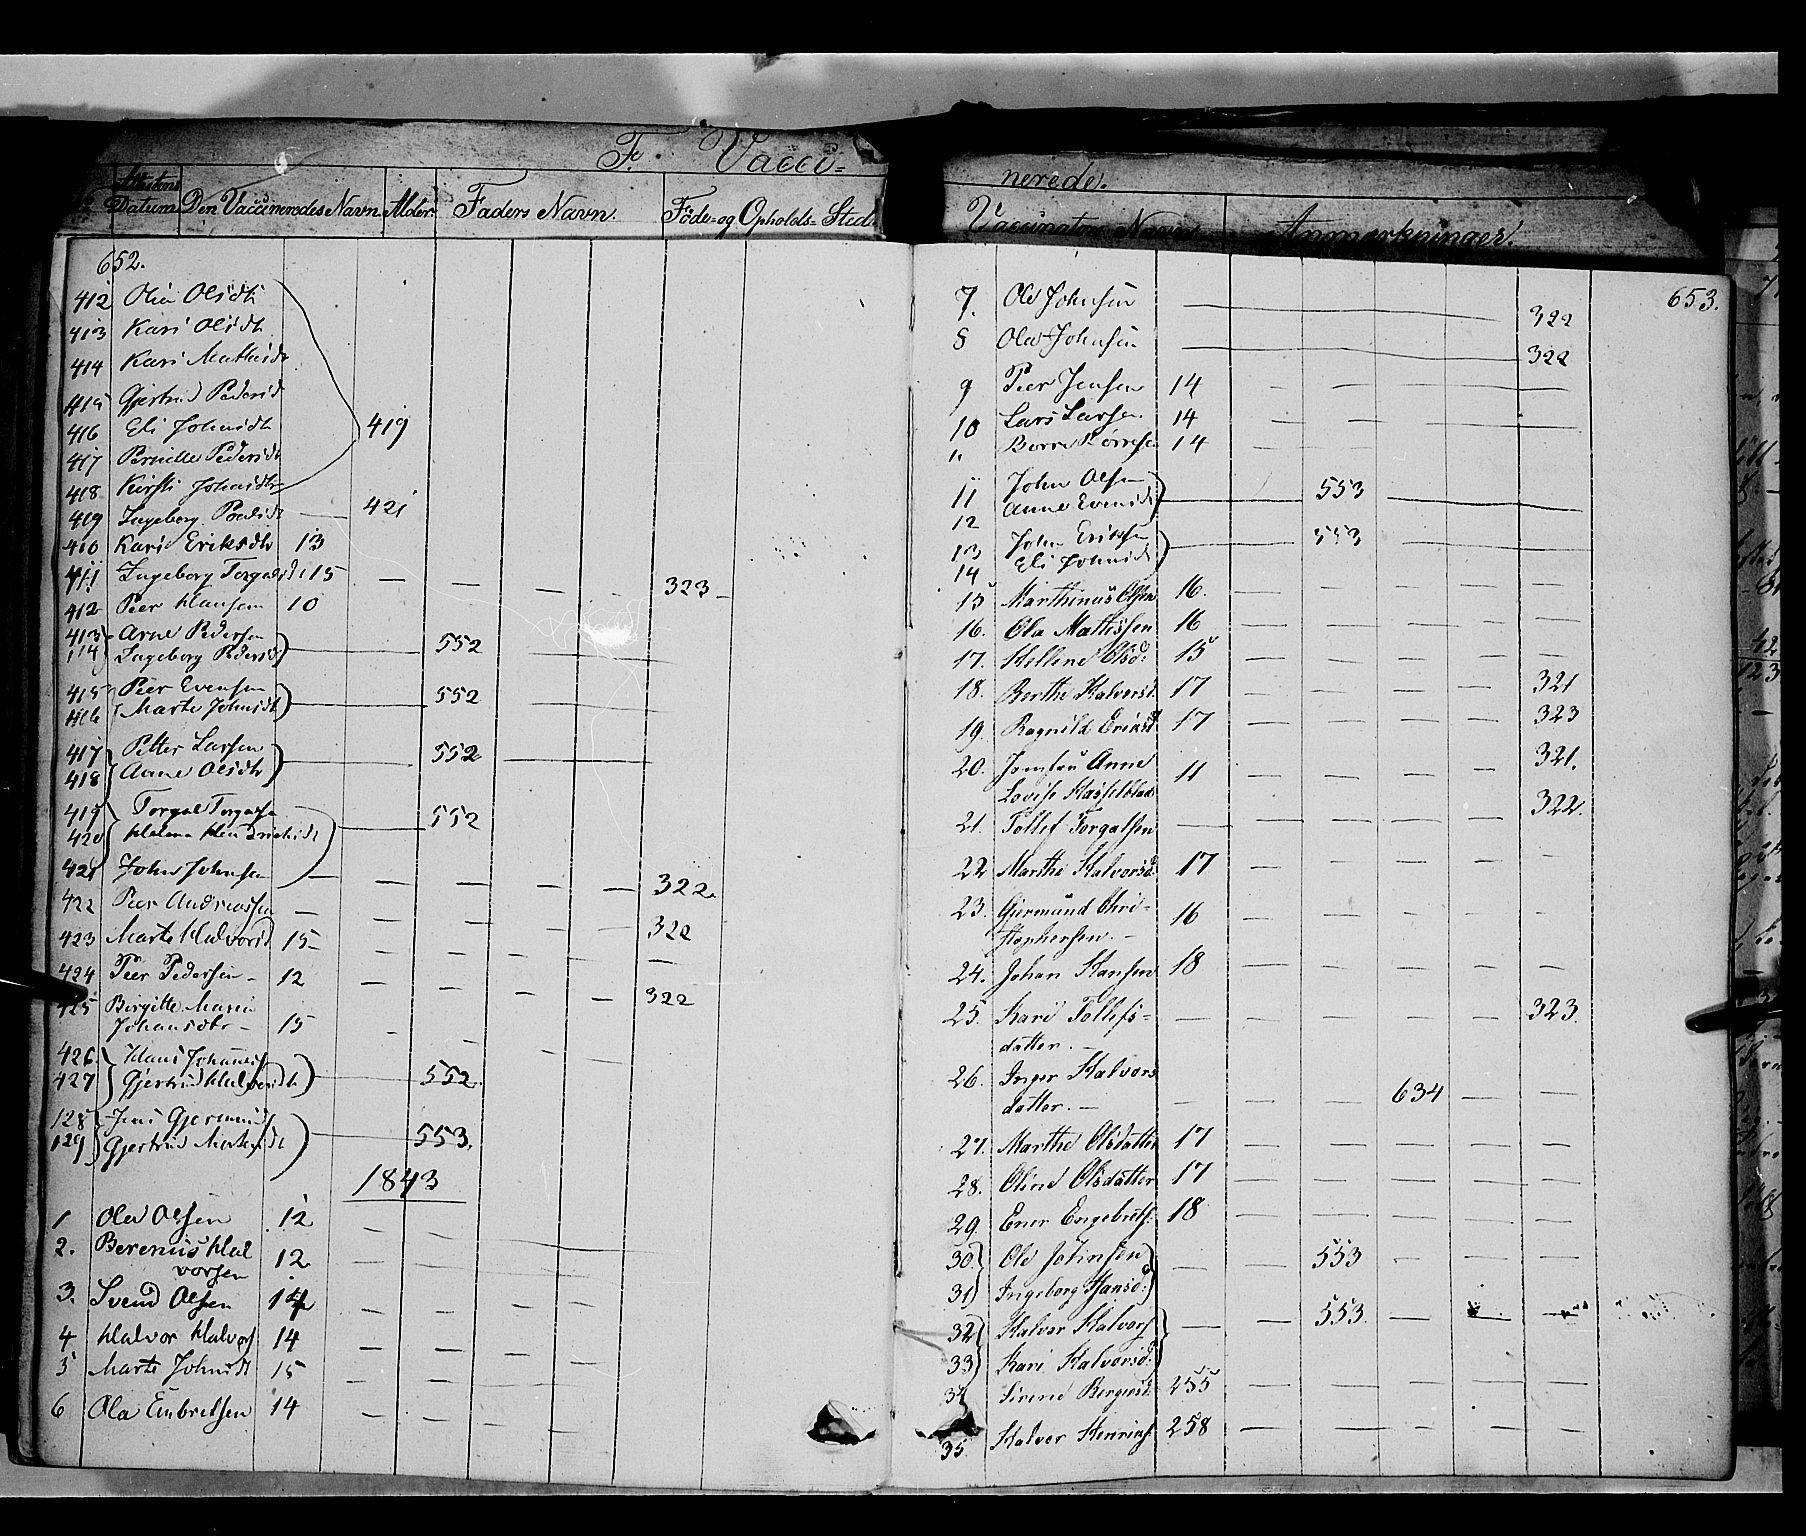 F. Vacci=
Datum Den Vaccineredes Navn Alder Faders Navn. Föde= og Opholds= Sted
652.
412 Olia Olsdtr
413 Kari Olsdtr
414 Kari Mathisdr
415 Gjertrud Pedersd
416 Eli Johnsdtr 419
417 Pernille Pedersdt
418 Kirsti Johnsdtr
419 Ingeborg Poulsdt — 421
410 Kari Eriksdtr 13
411 Ingeborg Torgalsd 15 — — — — 323 —
412 Peer Hansen 10
413 Arne Pedersen
114 Ingeborg Pedersd — 552 —
415 Peer Evensen
416 Marte Johnsdt — 552 —
417 Petter Larsen
418 Anne Olsdtr — 552 —
419 Torgal Torgalsen
420 Helena Hendrichsdt — 552
421 John Johnsen — — — — — 322.
422 Peer Andreassen — — — — — 322
423 Marte Halvorsd 15 — — — — —
424 Peer Pedersen — 12 — — — — 322
425 Birgitte Maria
Johansdtr — 15 — — — —
426 Hans Johansen
427 Gjertrud Halvorsdt — 552.
128 Jens Gjermunds
129 Gjertrud Mathisdt — 553.
1843
1 Ole Olsen 12 — —
2. Berenius Hal
vorsen 12
3. Svend Olsen 14 — — — —
4 Halvor Halvors 14 — — — —
5 Marte Johnsdt 15 — —
6 Ola Embretsen 14 — — —
nerede.
Vaccinators Navn Anmærkninger.
653.
7. Ole Johnsen — 322
8 Ole Johnsen — 322
9 Peer Jensen 14 — — — —
10 Lars Larsen 14 — — — —
11 Borre Börresen 14 — — — —
11 John Olsen
12 Anne Evensdt — 553 —
13 John Eriksen
14 Eli Johnsdt — 553 —
15 Marthinus Olsen 16. — — — — —
16. Ola Mathisen 16 — — — — —
17. Hellene Olsd: 15 — — — — —
18. Berthe Halvorsd. 17 — — — — 321
19. Ragnild Eriksd 17 — — — — 323
20. Jomfru Anne
Lovise Hasselblad 11 — — — — 321.
21. Tollef Torgalsen — — — — — 322.
22 Marthe Halvorsd. 17 — — — — —
23. Gjermund Chri=
stophersen. — 16 — — — — —
24. Johan Hansen 18 — — — — —
25. Kari Tollefs=
datter. — — — — — — 323.
26. Inger Halvors
datter. — — — — 634 — —
27. Marthe Olsdatter 17 — — — — —
28. Oline Olsdatter 17 — — — — —
29. Ener Engebrets. 18 — — — — —
30. Ole Johnsen
31 Ingeborg Hansd: — — 553 — — —
32 Halvor Halvors
33 Kari Halvorsd: — — 553. — — —
34 Sirene Bergersd. 255 — — — — —
35. Halvor Henriks. 258 — — — — —